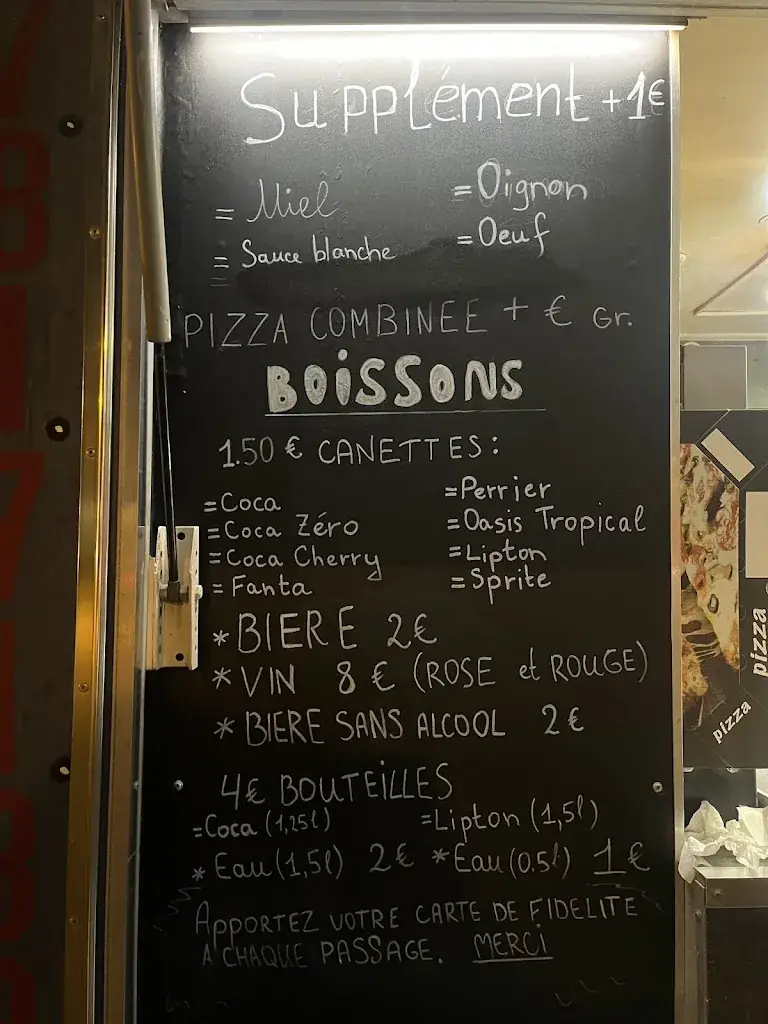 Supplément +1€
= Miel = Oignon
= Sauce blanche = Oeuf
PIZZA COMBINEE + € Gr.
BOISSONS
1.50 € CANETTES:
=Coca =Perrier
=Coca Zéro =Oasis Tropical
=Coca Cherry =Lipton
=Fanta =Sprite
*BIERE 2€
*VIN 8 € (ROSE et ROUGE)
*BIERE SANS ALCOOL 2€
4€ BOUTEILLES
=Coca (1,25l) =Lipton (1,5l)
*Eau (1,5l) 2€ *Eau (0.5l) 1€
APPORTEZ VOTRE CARTE DE FIDELITE
A CHAQUE PASSAGE. MERCI
pizza
pizza